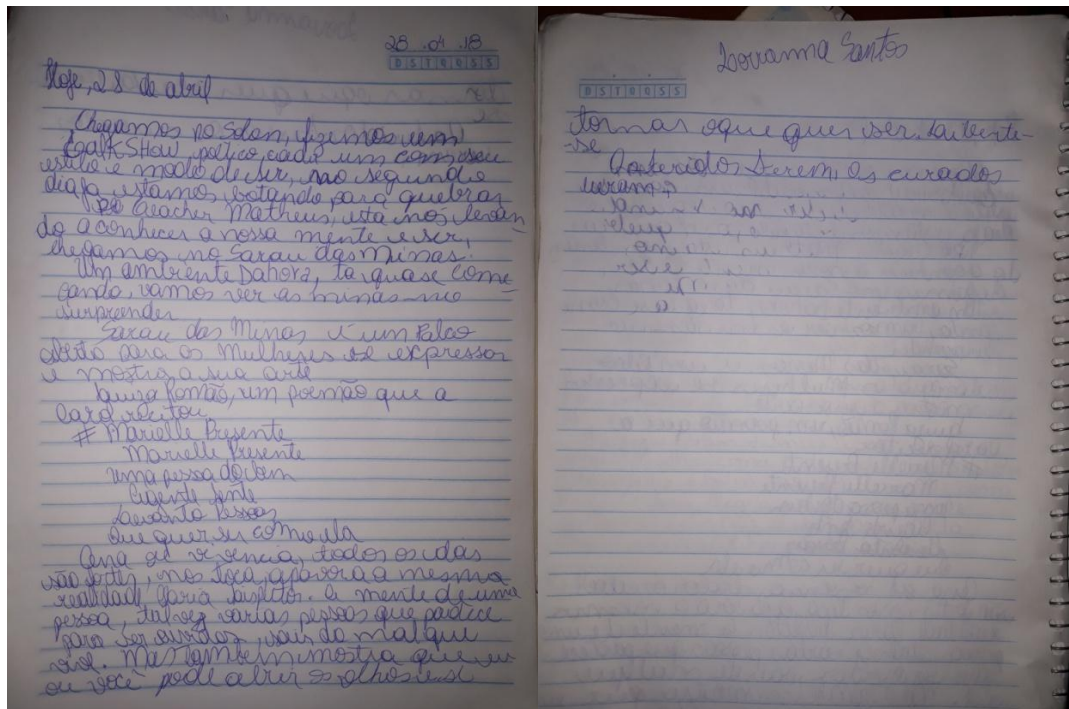 28 .04 .18
D S T Q Q S S
Hoje, 28 de abril
Chegamos no Solon, fizemos um
TalkSHOW, poltico, cada um com seu
estilo e modo de ser, no segundo
dia já estamos botando para quebrar
Teacher Matheus, esta nos levan
do a conhecer a nossa mente e ser,
chegamos no Sarau das Minas.
Um ambiente Dahora, ta quase come-
çando, vamos ver as minas no
surpreender
Sarau das Minas é um Palco
aberto para as Mulheres se expressar
e mostra a sua arte
um poemão que a
Carol recitou,
# Marielle Presente
Marielle Presente
uma pessoa do bem
Que gente sente
Levanta Pessoas
Que quer ser como ela
Cena de vivencia, todos os dias
são fortes, nos toca, apavora a mesma
realidade a mente de uma
pessoa, talvez varias pessoas que padece
para ser ouvidos, sair do mal que
vive. Mas também mostra que eu
ou você pode abrir os olhos e se
Lorranna Santos
D S T Q Q S S
tornar oque quer ser. Lambente-
se
serem, os curados